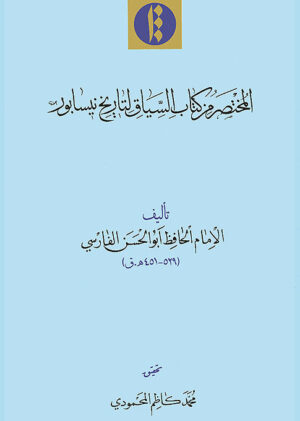 المختصر من كتاب السياق لتاريخ نيسابور
تأليف
الإمام الحافظ أبو الحسن الفارسي
(٤٥١-٥٢٩ هـ.ق)
تحقيق
محمد كاظم المحمودي